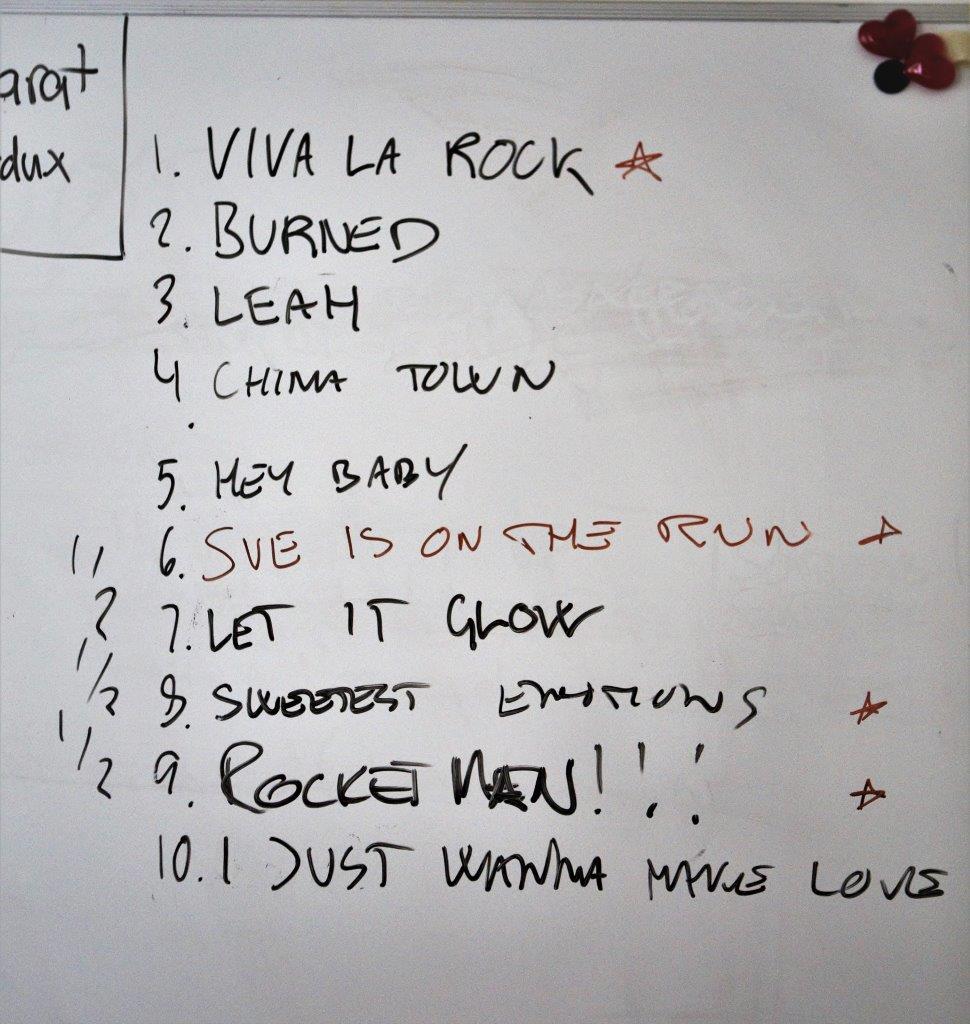 arat
dux
1. VIVA LA ROCK
2. BURNED
3. LEAH
4. CHINA TOWN
5. HEY BABY
6. SUE IS ON THE RUN
7. LET IT GLOW
8. SWEETEST EMOTIONS
9. ROCKET MAN!!!
10. I JUST WANNA MAKE LOVE
1/2
1/2
1/2